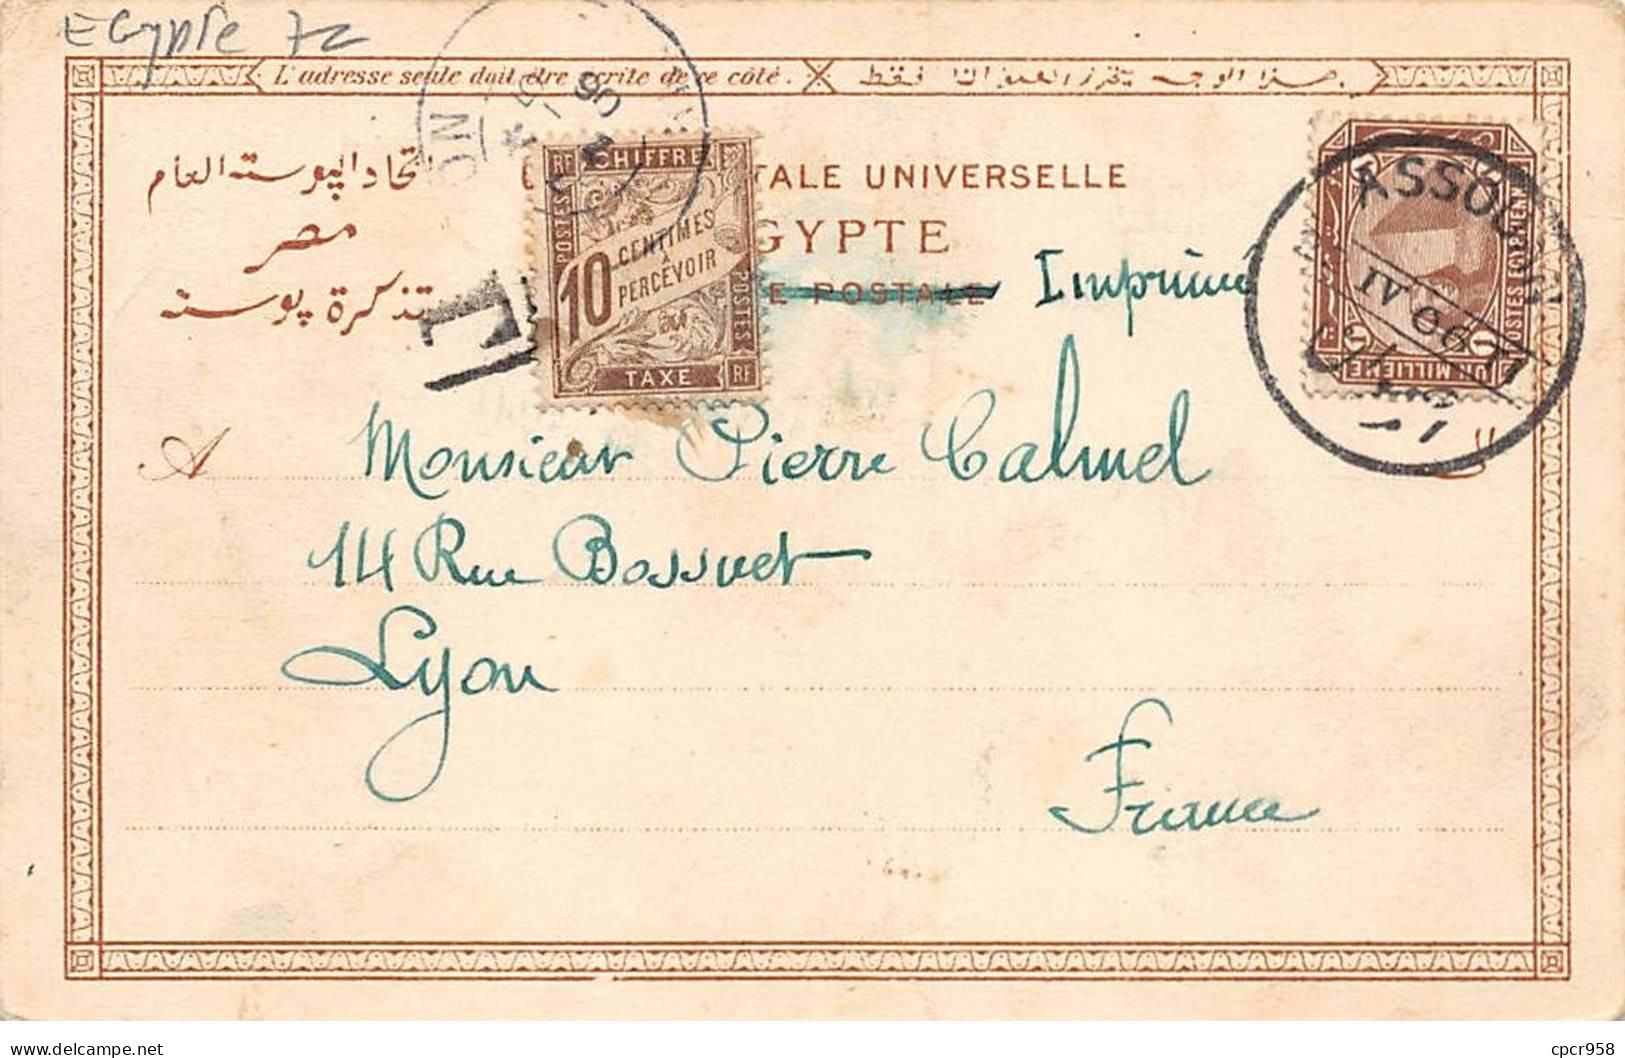 Egypte 72
L'adresse seule doit être écrite de ce côté. هذا الوجه يحرر العنوان فقط
اتحاد البوسته العام
مصر
تذكرة بوسته
TALE UNIVERSELLE
GYPTE
E POSTALE
Imprimé
RF CHIFFRE
POSTES
10 CENTIMES
À
PERCEVOIR
POSTES
TAXE RF
T
06
ON
ASSOUAN
IV 06
POSTES EGYPTIENNES
1 UN MILLIEME 1
A Monsieur Pierre Calmel
14 Rue Bossuet
Lyon
France
delcampe.net
cpcr958